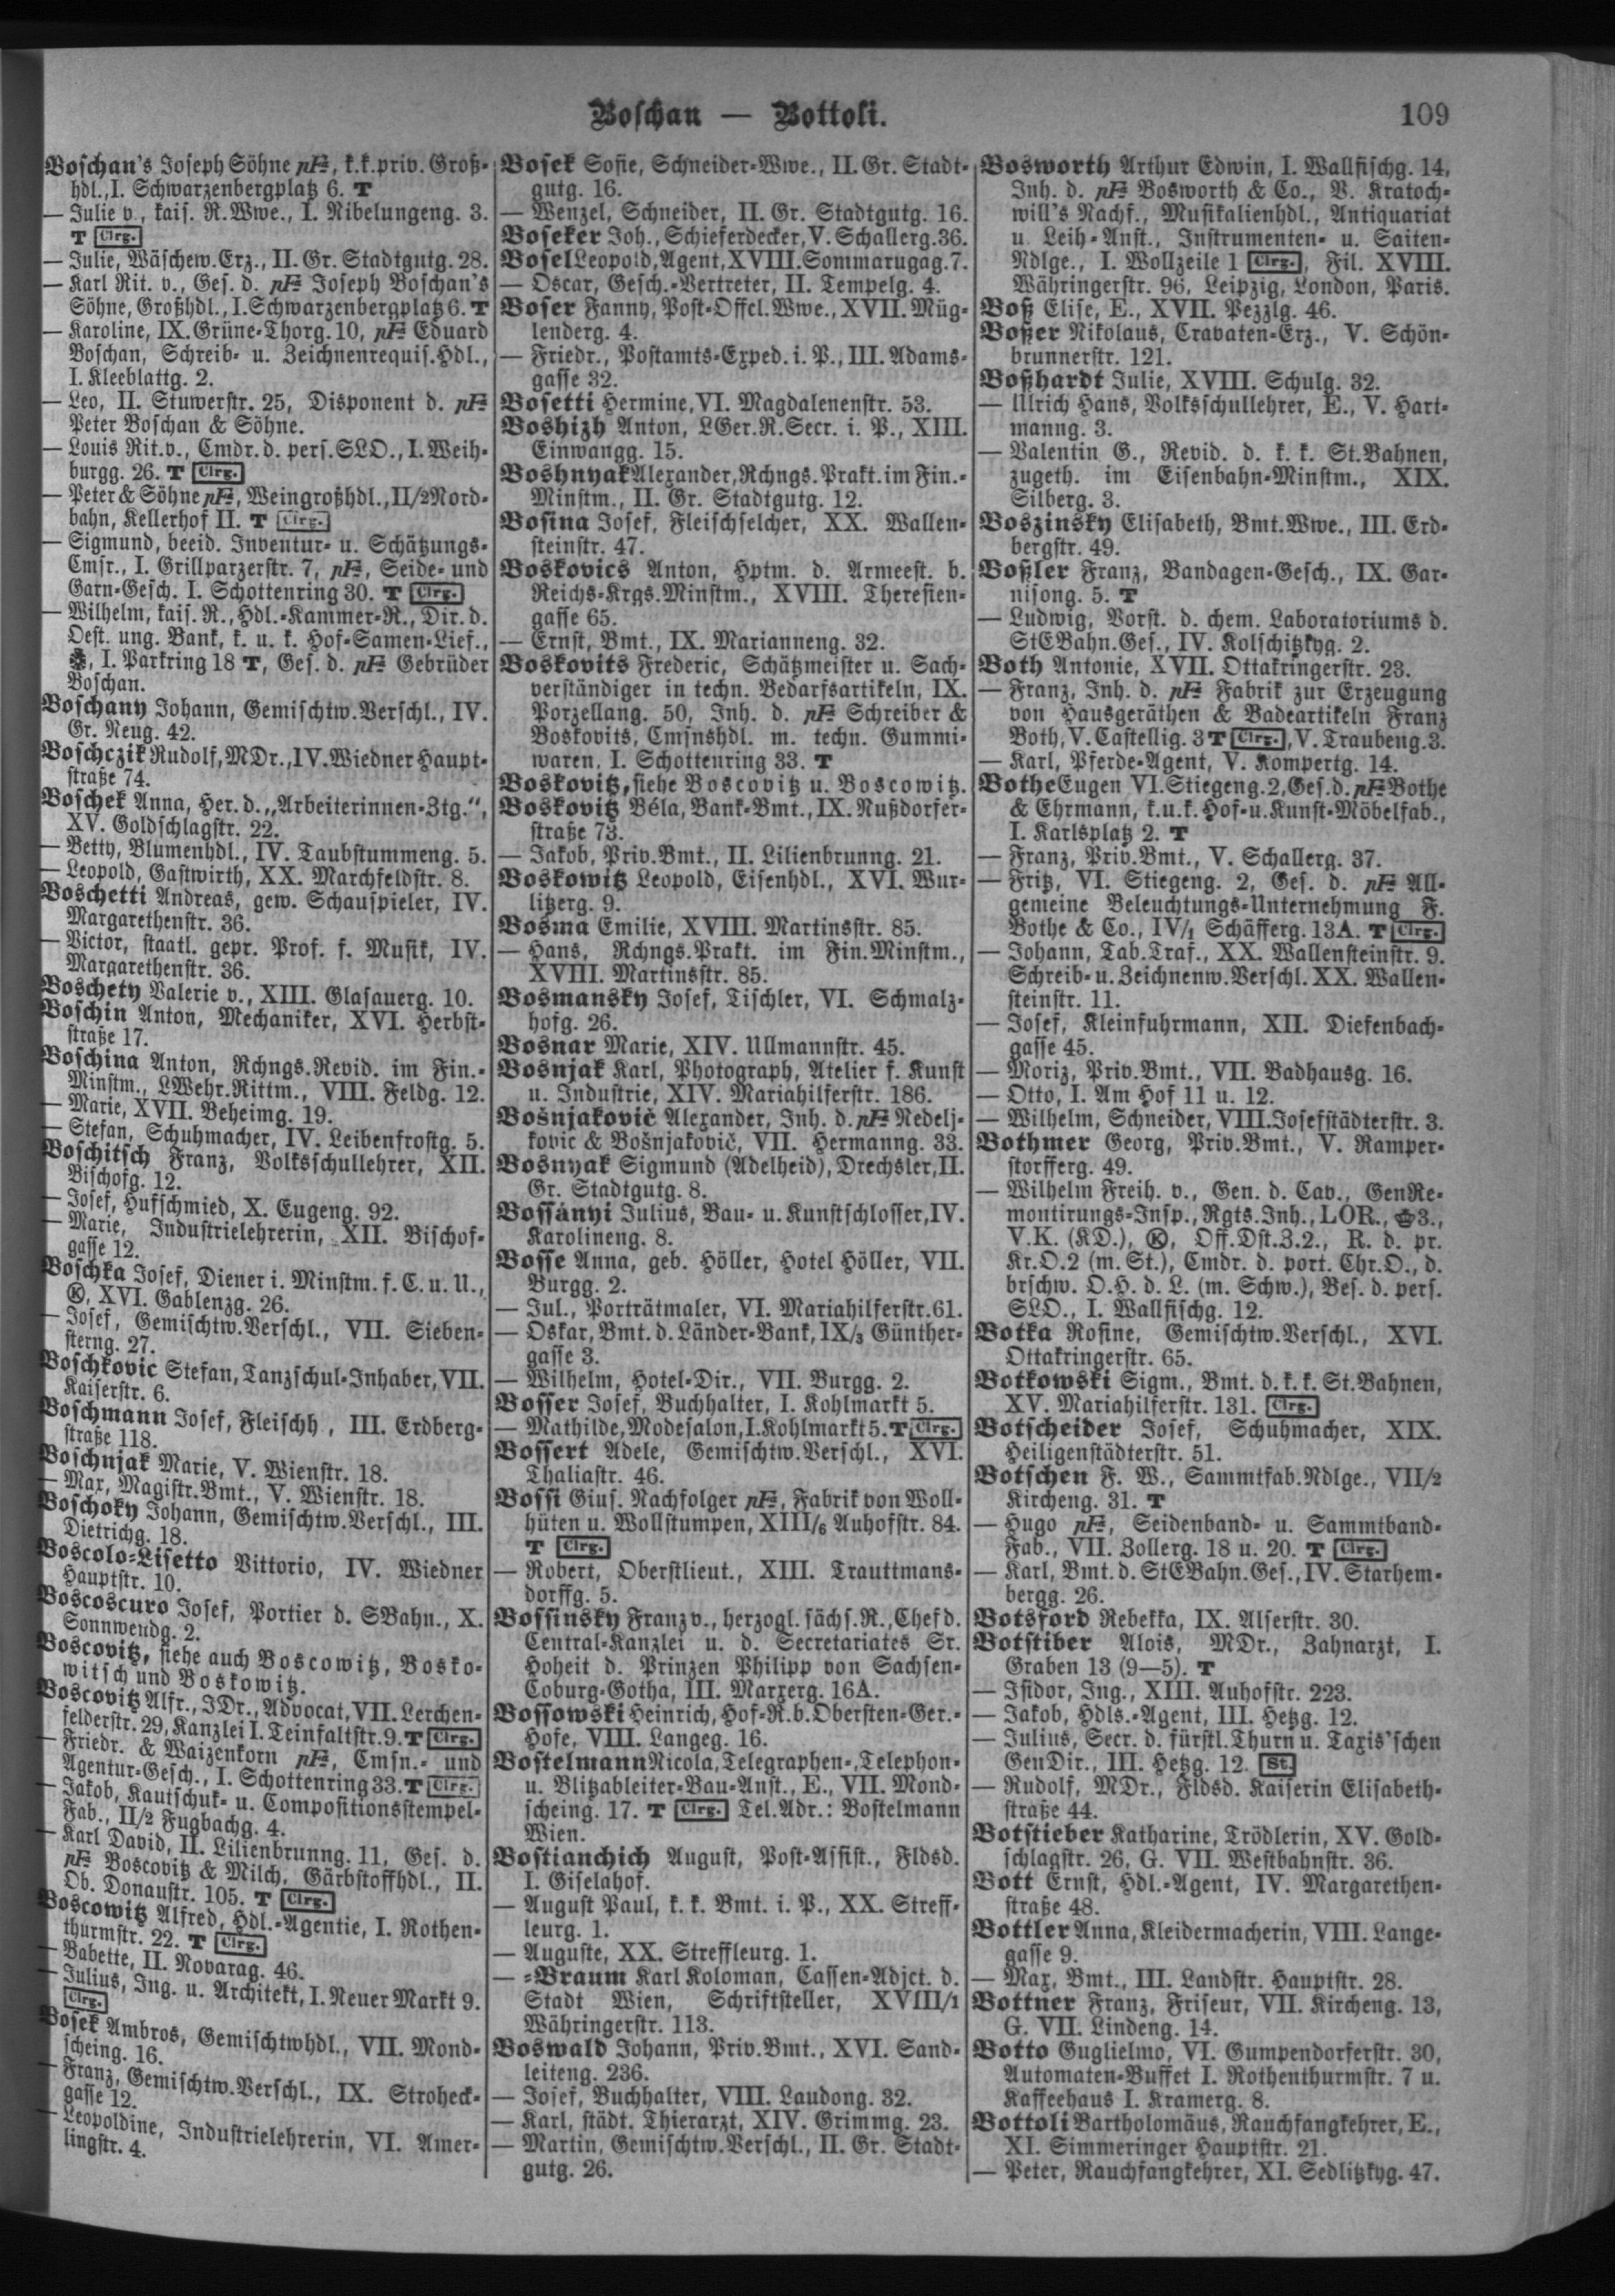 Boschan — Bottoli.
109
Boschan's Joseph Söhne pF=, k.k.priv. Groß-
hdl., I. Schwarzenbergplatz 6. T
— Julie v., kais. R.Wwe., I. Nibelungeng. 3.
T Clrg.
— Julie, Wäschew.Erz., II. Gr. Stadtgutg. 28.
— Karl Rit. v., Ges. d. pF= Joseph Boschan's
Söhne, Großhdl., I. Schwarzenbergplatz 6. T
— Karoline, IX. Grüne-Thorg. 10, pF= Eduard
Boschan, Schreib- u. Zeichnenrequis.Hdl.,
I. Kleeblattg. 2.
— Leo, II. Stuwerstr. 25, Disponent d. pF=
Peter Boschan & Söhne.
— Louis Rit.v., Cmdr. d. pers. SLO., I. Weih-
burgg. 26. T Clrg.
— Peter & Söhne pF=, Weingroßhdl., II/2 Nord-
bahn, Kellerhof II. T Clrg.
— Sigmund, beeid. Inventur- u. Schätzungs-
Cmsr., I. Grillparzerstr. 7, pF=, Seide- und
Garn-Gesch. I. Schottenring 30. T Clrg.
— Wilhelm, kais. R., Hdl.-Kammer-R., Dir. d.
Oest. ung. Bank, k. u. k. Hof-Samen-Lief.,
, I. Parkring 18 T, Ges. d. pF= Gebrüder
Boschan.
Boschany Johann, Gemischtw.Verschl., IV.
Gr. Neug. 42.
Boschczik Rudolf, MDr., IV. Wiedner Haupt-
straße 74.
Boschek Anna, Her. d. „Arbeiterinnen-Ztg.“,
XV. Goldschlagstr. 22.
— Betty, Blumenhdl., IV. Taubstummeng. 5.
— Leopold, Gastwirth, XX. Marchfeldstr. 8.
Boschetti Andreas, gew. Schauspieler, IV.
Margarethenstr. 36.
— Victor, staatl. gepr. Prof. f. Musik, IV.
Margarethenstr. 36.
Boschety Valerie v., XIII. Glasauerg. 10.
Boschin Anton, Mechaniker, XVI. Herbst-
straße 17.
Boschina Anton, Rchngs.Revid. im Fin.-
Minstm., LWehr.Rittm., VIII. Feldg. 12.
— Marie, XVII. Beheimg. 19.
— Stefan, Schuhmacher, IV. Leibenfrostg. 5.
Boschitsch Franz, Volksschullehrer, XII.
Bischofg. 12.
— Josef, Hufschmied, X. Eugeng. 92.
— Marie, Industrielehrerin, XII. Bischof-
gasse 12.
Boschka Josef, Diener i. Minstm. f. C. u. U.,
Ⓚ, XVI. Gablenzg. 26.
— Josef, Gemischtw.Verschl., VII. Sieben-
sterng. 27.
Boschkovic Stefan, Tanzschul-Inhaber, VII.
Kaiserstr. 6.
Boschmann Josef, Fleischh., III. Erdberg-
straße 118.
Boschnjak Marie, V. Wienstr. 18.
— Max, Magistr.Bmt., V. Wienstr. 18.
Boschoky Johann, Gemischtw.Verschl., III.
Dietrichg. 18.
Boscolo-Lisetto Vittorio, IV. Wiedner
Hauptstr. 10.
Boscoscuro Josef, Portier d. SBahn., X.
Sonnwendg. 2.
Boscovitz, siehe auch Boscowitz, Bosko-
witsch und Boskowitz.
Boscovitz Alfr., JDr., Advocat, VII. Lerchen-
felderstr. 29, Kanzlei I. Teinfaltstr. 9. T Clrg.
— Friedr. & Waizenkorn pF=, Cmsn.- und
Agentur-Gesch., I. Schottenring 33. T Clrg.
— Jakob, Kautschuk- u. Compositionsstempel-
Fab., II/2 Fugbachg. 4.
— Karl David, II. Lilienbrunng. 11, Ges. d.
pF= Boscovitz & Milch, Gärbstoffhdl., II.
Ob. Donaustr. 105. T Clrg.
Boscowitz Alfred, Hdl.-Agentie, I. Rothen-
thurmstr. 22. T Clrg.
— Babette, II. Novarag. 46.
— Julius, Ing. u. Architekt, I. Neuer Markt 9.
Clrg.
Bosek Ambros, Gemischtwhdl., VII. Mond-
scheing. 16.
— Franz, Gemischtw.Verschl., IX. Stroheck-
gasse 12.
— Leopoldine, Industrielehrerin, VI. Amer-
lingstr. 4.
Bosek Sofie, Schneider-Wwe., II. Gr. Stadt-
gutg. 16.
— Wenzel, Schneider, II. Gr. Stadtgutg. 16.
Boseker Joh., Schieferdecker, V. Schallerg. 36.
Bosel Leopold, Agent, XVIII. Sommarugag. 7.
— Oscar, Gesch.-Vertreter, II. Tempelg. 4.
Boser Fanny, Post-Offcl.Wwe., XVII. Müg-
lenderg. 4.
— Friedr., Postamts-Exped. i. P., III. Adams-
gasse 32.
Bosetti Hermine, VI. Magdalenenstr. 53.
Boshizh Anton, LGer.R.Secr. i. P., XIII.
Einwangg. 15.
Boshnyak Alexander, Rchngs.Prakt. im Fin.-
Minstm., II. Gr. Stadtgutg. 12.
Bosina Josef, Fleischselcher, XX. Wallen-
steinstr. 47.
Boskovics Anton, Hptm. d. Armeest. b.
Reichs-Krgs.Minstm., XVIII. Theresien-
gasse 65.
— Ernst, Bmt., IX. Marianneng. 32.
Boskovits Frederic, Schätzmeister u. Sach-
verständiger in techn. Bedarfsartikeln, IX.
Porzellang. 50, Inh. d. pF= Schreiber &
Boskovits, Cmsnshdl. m. techn. Gummi-
waren, I. Schottenring 33. T
Boskovitz, siehe Boscovitz u. Boscowitz.
Boskovitz Béla, Bank-Bmt., IX. Nußdorfer-
straße 73.
— Jakob, Priv.Bmt., II. Lilienbrunng. 21.
Boskowitz Leopold, Eisenhdl., XVI. Wur-
litzerg. 9.
Bosma Emilie, XVIII. Martinsstr. 85.
— Hans, Rchngs.Prakt. im Fin.Minstm.,
XVIII. Martinsstr. 85.
Bosmansky Josef, Tischler, VI. Schmalz-
hofg. 26.
Bosnar Marie, XIV. Ullmannstr. 45.
Bosnjak Karl, Photograph, Atelier f. Kunst
u. Industrie, XIV. Mariahilferstr. 186.
Bošnjaković Alexander, Inh. d. pF= Nedelj-
kovic & Bošnjaković, VII. Hermanng. 33.
Bosnyak Sigmund (Adelheid), Drechsler, II.
Gr. Stadtgutg. 8.
Bossányi Julius, Bau- u. Kunstschlosser, IV.
Karolineng. 8.
Bosse Anna, geb. Höller, Hotel Höller, VII.
Burgg. 2.
— Jul., Porträtmaler, VI. Mariahilferstr. 61.
— Oskar, Bmt. d. Länder-Bank, IX/3 Günther-
gasse 3.
— Wilhelm, Hotel-Dir., VII. Burgg. 2.
Bosser Josef, Buchhalter, I. Kohlmarkt 5.
— Mathilde, Modesalon, I. Kohlmarkt 5. T Clrg.
Bossert Adele, Gemischtw.Verschl., XVI.
Thaliastr. 46.
Bossi Gius. Nachfolger pF=, Fabrik von Woll-
hüten u. Wollstumpen, XIII/6 Auhofstr. 84.
T Clrg.
— Robert, Oberstlieut., XIII. Trauttmans-
dorffg. 5.
Bossinsky Franz v., herzogl. sächs. R., Chef d.
Central-Kanzlei u. d. Secretariates Sr.
Hoheit d. Prinzen Philipp von Sachsen-
Coburg-Gotha, III. Marxerg. 16A.
Bossowski Heinrich, Hof-R. b. Obersten-Ger.-
Hofe, VIII. Langeg. 16.
Bostelmann Nicola, Telegraphen-, Telephon-
u. Blitzableiter-Bau-Anst., E., VII. Mond-
scheing. 17. T Clrg. Tel.Adr.: Bostelmann
Wien.
Bostianchich August, Post-Assist., Fldsd.
I. Giselahof.
— August Paul, k. k. Bmt. i. P., XX. Streff-
leurg. 1.
— Auguste, XX. Streffleurg. 1.
— -Braum Karl Koloman, Cassen-Adjct. d.
Stadt Wien, Schriftsteller, XVIII/1
Währingerstr. 113.
Boswald Johann, Priv.Bmt., XVI. Sand-
leiteng. 236.
— Josef, Buchhalter, VIII. Laudong. 32.
— Karl, städt. Thierarzt, XIV. Grimmg. 23.
— Martin, Gemischtw.Verschl., II. Gr. Stadt-
gutg. 26.
Bosworth Arthur Edwin, I. Wallfischg. 14,
Inh. d. pF= Bosworth & Co., V. Kratoch-
will's Nachf., Musikalienhdl., Antiquariat
u. Leih-Anst., Instrumenten- u. Saiten-
Ndlge., I. Wollzeile 1 Clrg., Fil. XVIII.
Währingerstr. 96, Leipzig, London, Paris.
Boß Elise, E., XVII. Pezzlg. 46.
Boßer Nikolaus, Cravaten-Erz., V. Schön-
brunnerstr. 121.
Boßhardt Julie, XVIII. Schulg. 32.
— Ulrich Hans, Volksschullehrer, E., V. Hart-
manng. 3.
— Valentin G., Revid. d. k. k. St.Bahnen,
zugeth. im Eisenbahn-Minstm., XIX.
Silberg. 3.
Boszinsky Elisabeth, Bmt.Wwe., III. Erd-
bergstr. 49.
Boßler Franz, Bandagen-Gesch., IX. Gar-
nisong. 5. T
— Ludwig, Vorst. d. chem. Laboratoriums d.
StEBahn.Ges., IV. Kolschitzkyg. 2.
Both Antonie, XVII. Ottakringerstr. 23.
— Franz, Inh. d. pF= Fabrik zur Erzeugung
von Hausgeräthen & Badeartikeln Franz
Both, V. Castellig. 3 T Clrg., V. Traubeng. 3.
— Karl, Pferde-Agent, V. Kompertg. 14.
Bothe Eugen VI. Stiegeng. 2, Ges. d. pF= Bothe
& Ehrmann, k.u.k. Hof-u. Kunst-Möbelfab.,
I. Karlsplatz 2. T
— Franz, Priv.Bmt., V. Schallerg. 37.
— Fritz, VI. Stiegeng. 2, Ges. d. pF= All-
gemeine Beleuchtungs-Unternehmung F.
Bothe & Co., IV/1 Schäfferg. 13A. T Clrg.
— Johann, Tab.Traf., XX. Wallensteinstr. 9.
Schreib- u. Zeichnenw.Verschl. XX. Wallen-
steinstr. 11.
— Josef, Kleinfuhrmann, XII. Diefenbach-
gasse 45.
— Moriz, Priv.Bmt., VII. Badhausg. 16.
— Otto, I. Am Hof 11 u. 12.
— Wilhelm, Schneider, VIII. Josefstädterstr. 3.
Bothmer Georg, Priv.Bmt., V. Ramper-
storfferg. 49.
— Wilhelm Freih. v., Gen. d. Cav., GenRe-
montirungs-Insp., Rgts.Inh., LOR., 3.,
V.K. (KD.), Ⓚ, Off.Dst.Z.2., R. d. pr.
Kr.O.2 (m. St.), Cmdr. d. port. Chr.O., d.
brschw. O.H. d. L. (m. Schw.), Bes. d. pers.
SLO., I. Wallfischg. 12.
Botka Rosine, Gemischtw.Verschl., XVI.
Ottakringerstr. 65.
Botkowski Sigm., Bmt. d. k. k. St.Bahnen,
XV. Mariahilferstr. 131. Clrg.
Botscheider Josef, Schuhmacher, XIX.
Heiligenstädterstr. 51.
Botschen F. W., Sammtfab.Ndlge., VII/2
Kircheng. 31. T
— Hugo pF=, Seidenband- u. Sammtband-
Fab., VII. Zollerg. 18 u. 20. T Clrg.
— Karl, Bmt. d. StEBahn.Ges., IV. Starhem-
bergg. 26.
Botsford Rebekka, IX. Alserstr. 30.
Botstiber Alois, MDr., Zahnarzt, I.
Graben 13 (9—5). T
— Isidor, Ing., XIII. Auhofstr. 223.
— Jakob, Hdls.-Agent, III. Hetzg. 12.
— Julius, Secr. d. fürstl. Thurn u. Taxis'schen
GenDir., III. Hetzg. 12. St.
— Rudolf, MDr., Fldsd. Kaiserin Elisabeth-
straße 44.
Botstieber Katharine, Trödlerin, XV. Gold-
schlagstr. 26, G. VII. Westbahnstr. 36.
Bott Ernst, Hdl.-Agent, IV. Margarethen-
straße 48.
Bottler Anna, Kleidermacherin, VIII. Lange-
gasse 9.
— Max, Bmt., III. Landstr. Hauptstr. 28.
Bottner Franz, Friseur, VII. Kircheng. 13,
G. VII. Lindeng. 14.
Botto Guglielmo, VI. Gumpendorferstr. 30,
Automaten-Buffet I. Rothenthurmstr. 7 u.
Kaffeehaus I. Kramerg. 8.
Bottoli Bartholomäus, Rauchfangkehrer, E.,
XI. Simmeringer Hauptstr. 21.
— Peter, Rauchfangkehrer, XI. Sedlitzkyg. 47.